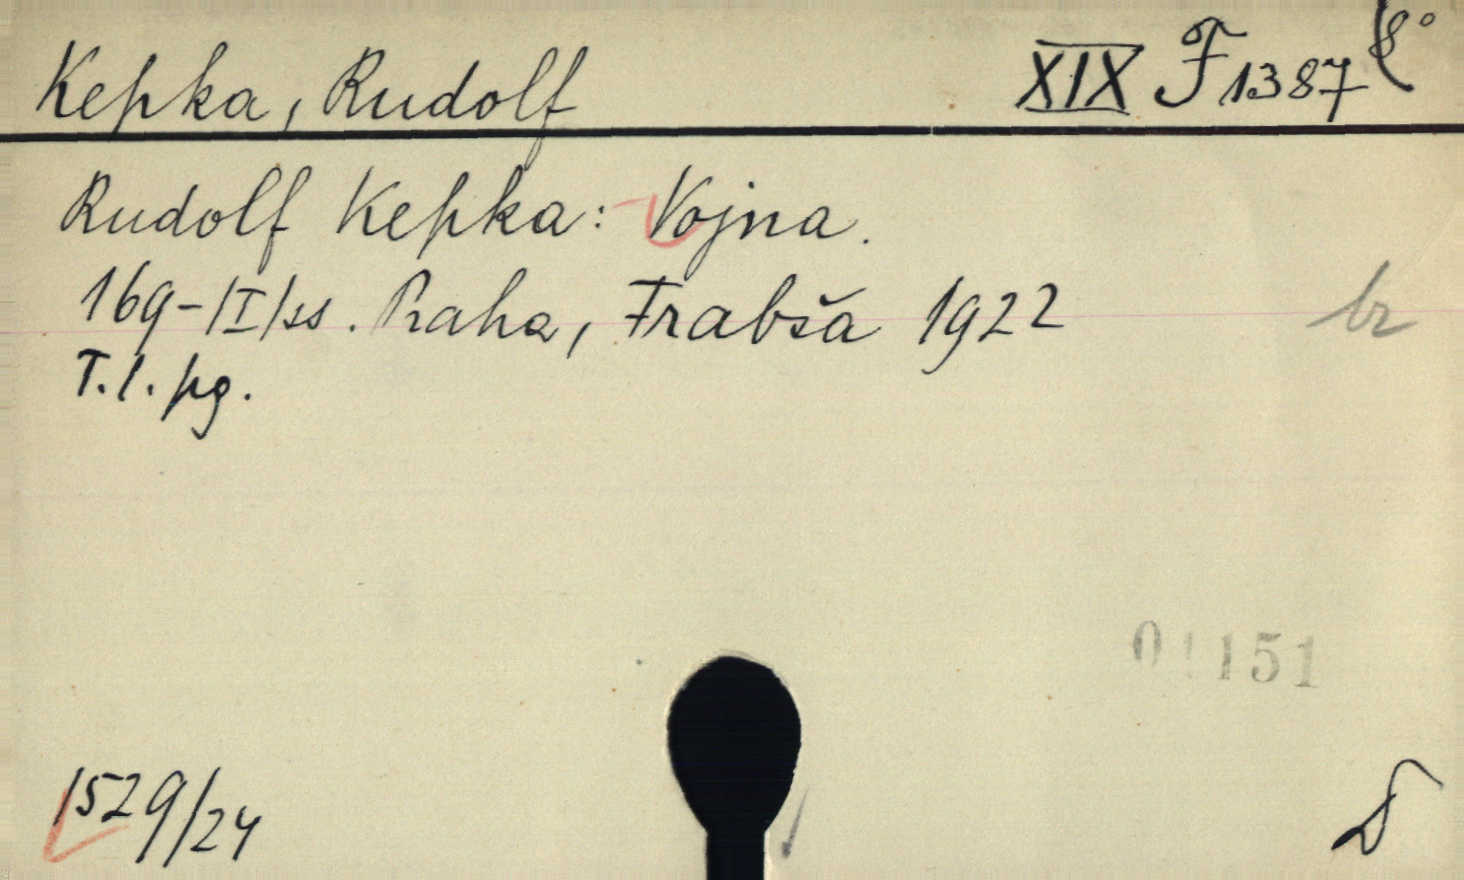 Kepka, Rudolf XIX F 1387 8°
Rudolf Kepka: Vojna.
169-/I/ss. Praha, Frabša 1922
br
T. l. pg.
1529/24